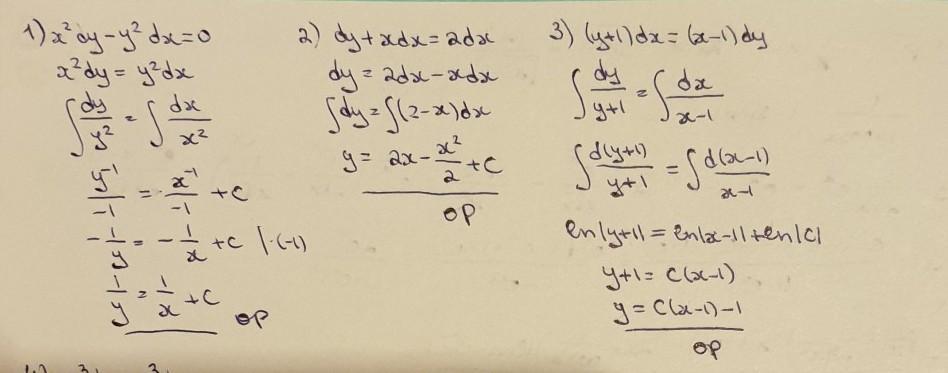 1) x² dy - y² dx = 0
x² dy = y² dx
∫ dy/y² = ∫ dx/x²
y⁻¹/-1 = x⁻¹/-1 + C
-1/y = -1/x + C |·(-1)
1/y = 1/x + C
op
2) dy + xdx = 2dx
dy = 2dx - xdx
∫dy = ∫(2-x)dx
y = 2x - x²/2 + C
op
3) (y+1)dx = (x-1)dy
∫ dy/y+1 = ∫ dx/x-1
∫ d(y+1)/y+1 = ∫ d(x-1)/x-1
ln|y+1| = ln|x-1| + ln|C|
y+1 = C(x-1)
y = C(x-1) - 1
op